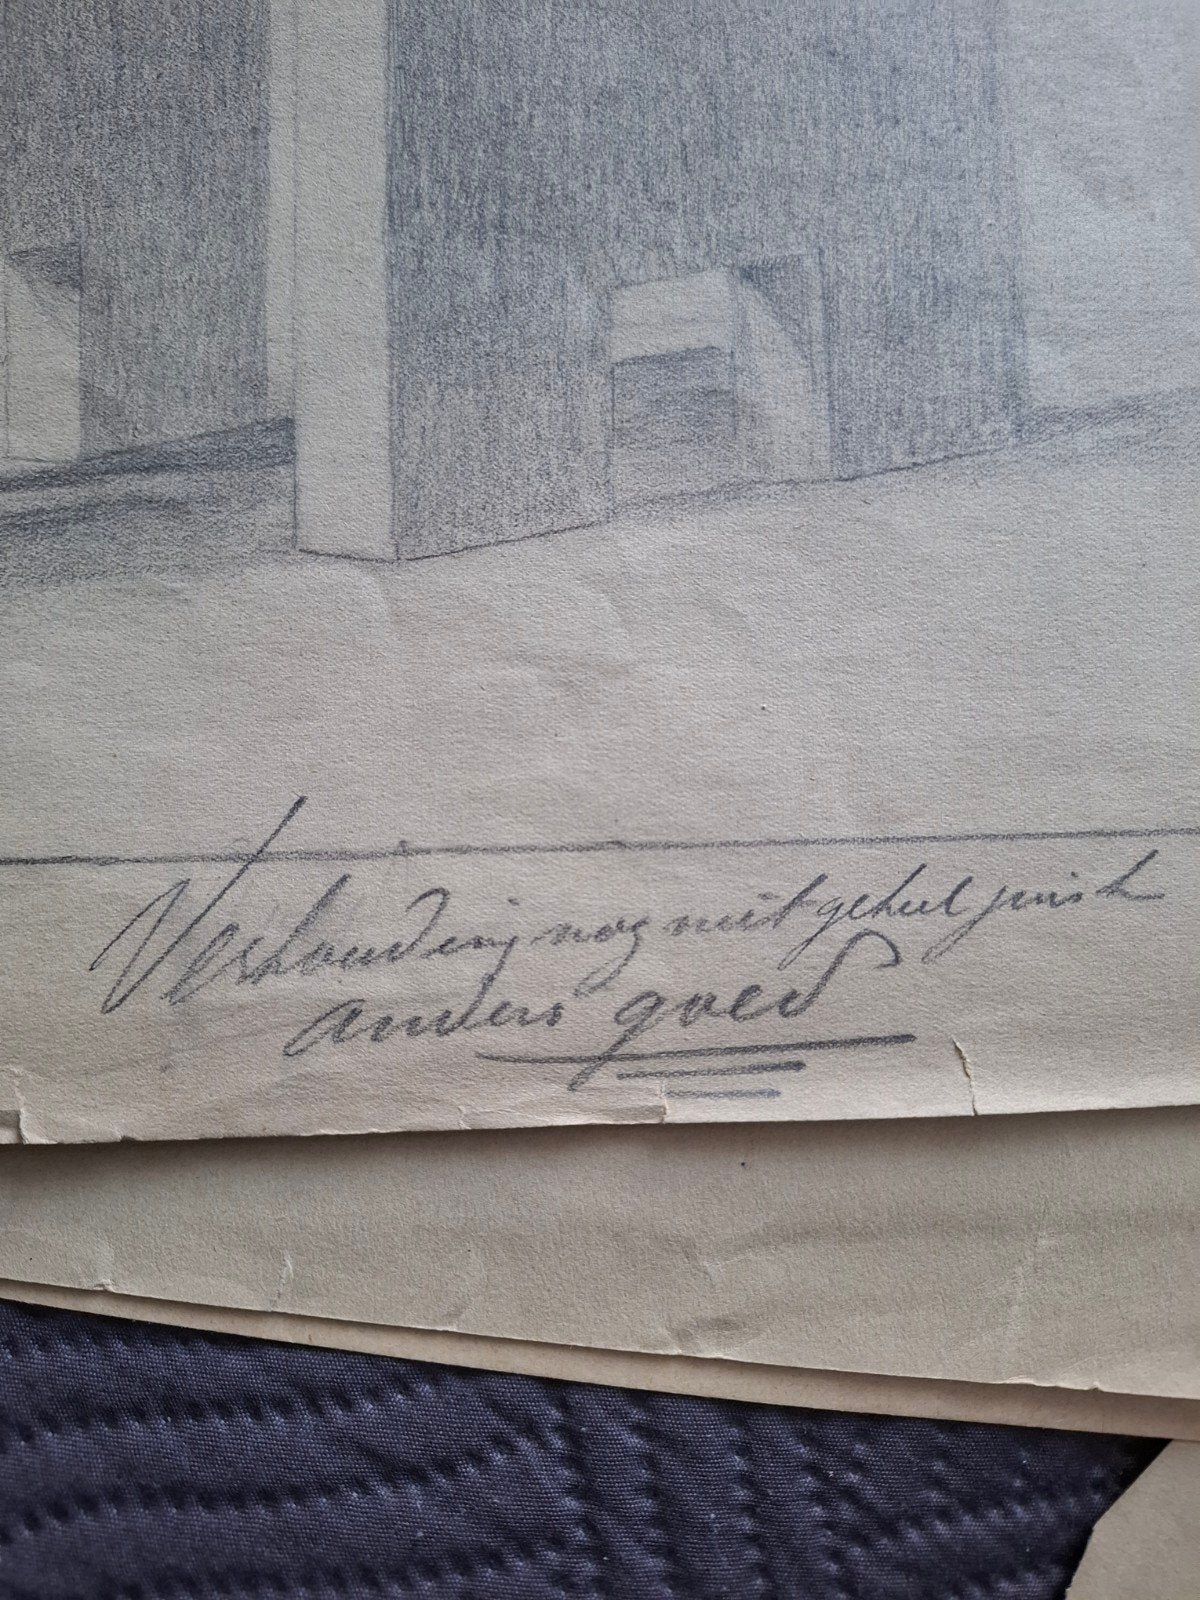 Verhouding nog niet geheel juist
anders goed